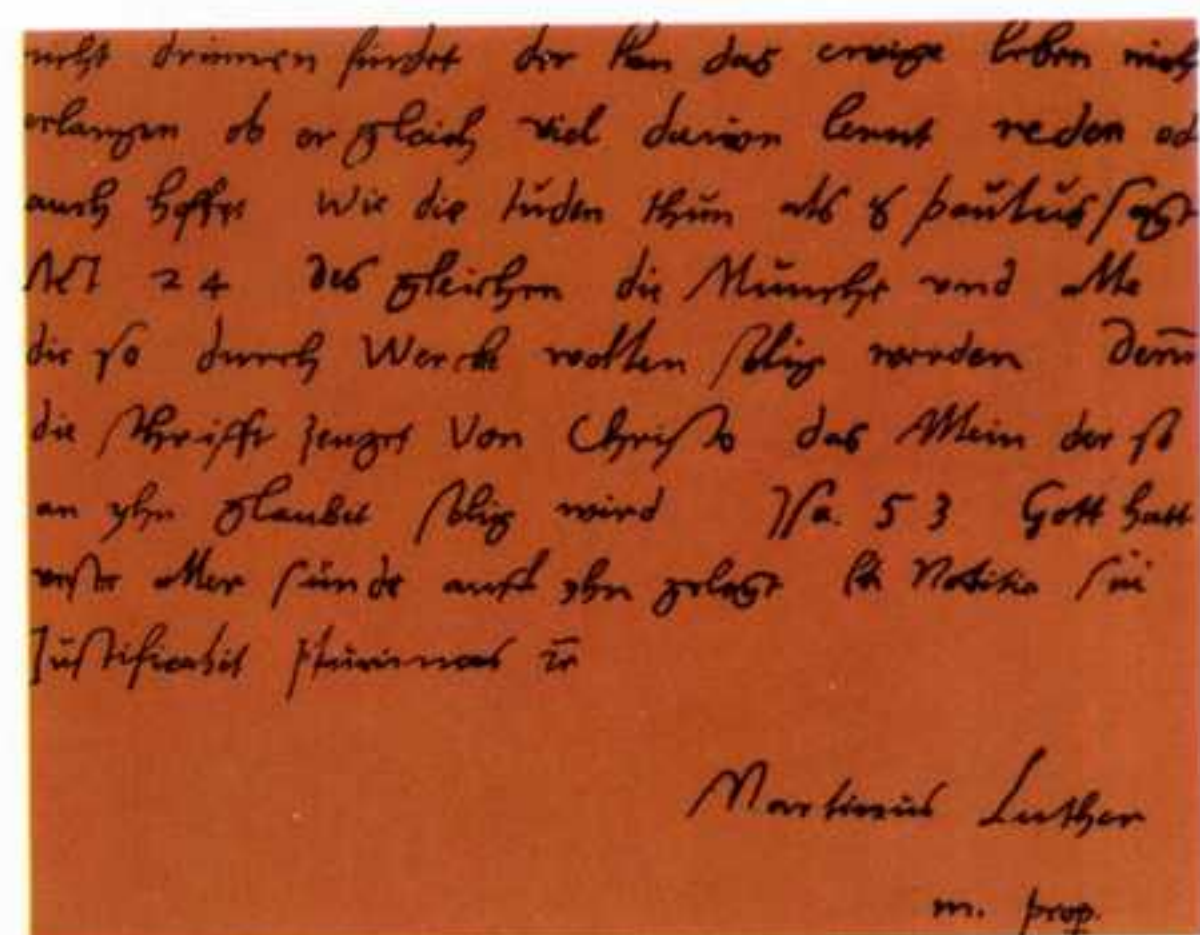 nicht drinnen findet der kan das ewige leben nich
erlangen ob er gleich viel davon lernt reden od
auch hoffet Wie die Juden thun als S paulus sagt
Act 24 des gleichen die Munche und alle
die so durch Werck wollen selig werden Denn
die schrifft zeuget Von Christo das Allein der so
an yhn glaubet selig wird Jsa. 53 Gott hatt
aller sunde auff yhn gelegt Et Notitia sui
Justificabit plurimos
Martinus Luther
m. prop.